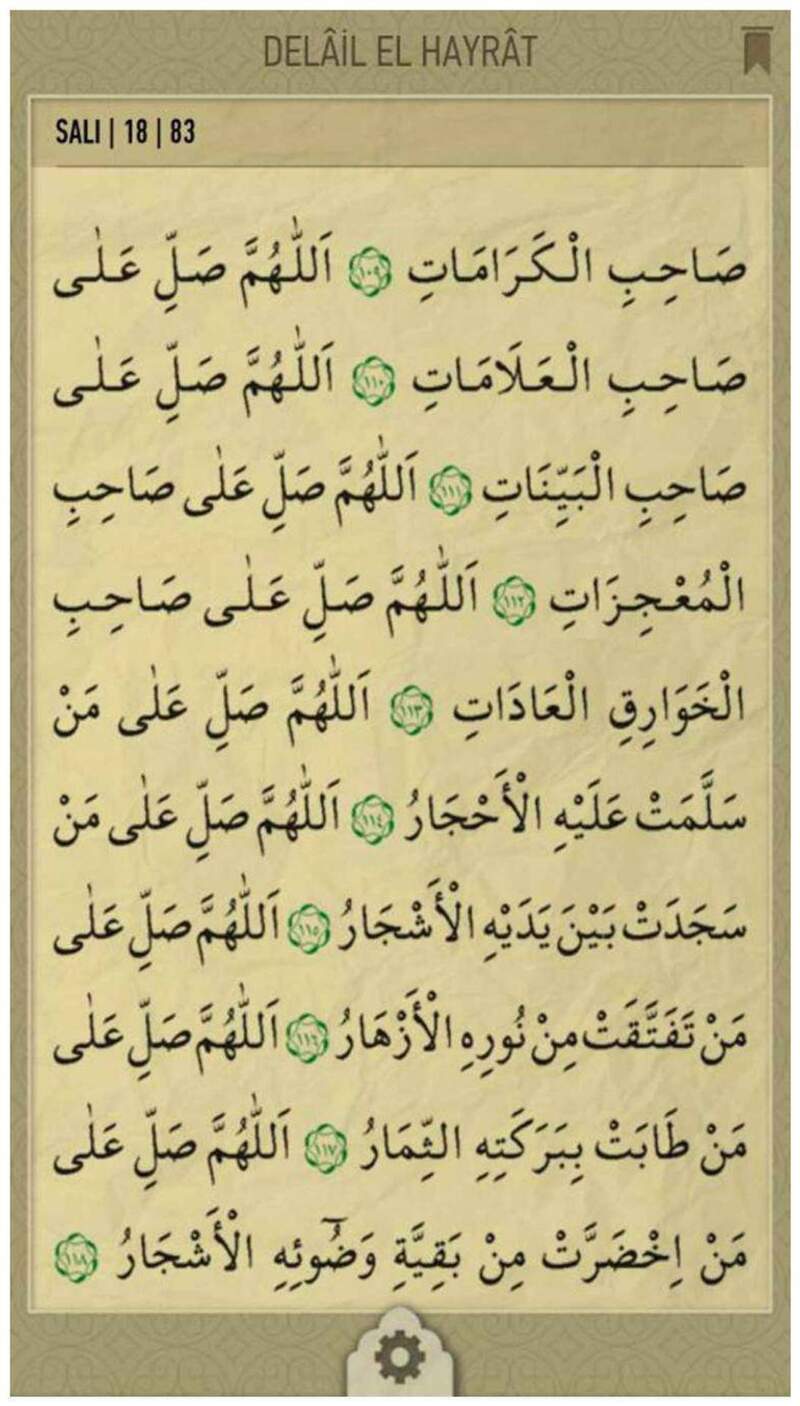 DELÂİL EL HAYRÂT
SALI | 18 | 83
صَاحِبِ الْكَرَامَاتِ ١٠٩ اَللّٰهُمَّ صَلِّ عَلٰى
صَاحِبِ الْعَلَامَاتِ ١١٠ اَللّٰهُمَّ صَلِّ عَلٰى
صَاحِبِ الْبَيِّنَاتِ ١١١ اَللّٰهُمَّ صَلِّ عَلٰى صَاحِبِ
الْمُعْجِزَاتِ ١١٢ اَللّٰهُمَّ صَلِّ عَلٰى صَاحِبِ
الْخَوَارِقِ الْعَادَاتِ ١١٣ اَللّٰهُمَّ صَلِّ عَلٰى مَنْ
سَلَّمَتْ عَلَيْهِ الْأَحْجَارُ ١١٤ اَللّٰهُمَّ صَلِّ عَلٰى مَنْ
سَجَدَتْ بَيْنَ يَدَيْهِ الْأَشْجَارُ ١١٥ اَللّٰهُمَّ صَلِّ عَلٰى
مَنْ تَفَتَّقَتْ مِنْ نُورِهِ الْأَزْهَارُ ١١٦ اَللّٰهُمَّ صَلِّ عَلٰى
مَنْ طَابَتْ بِبَرَكَتِهِ الثِّمَارُ ١١٧ اَللّٰهُمَّ صَلِّ عَلٰى
مَنْ اِخْضَرَّتْ مِنْ بَقِيَّةِ وَضُوٓئِهِ الْأَشْجَارُ ١١٨